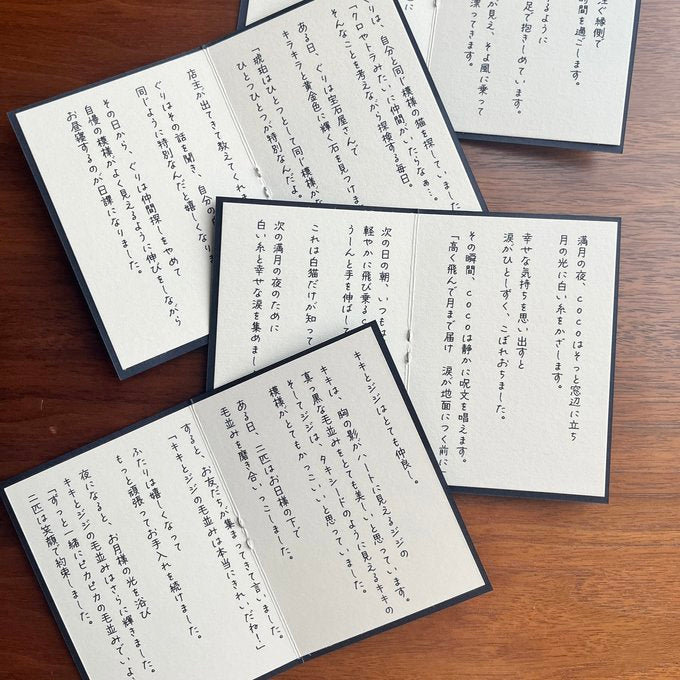 注ぐ縁側で
時間を過ごします。
るように
足で抱きしめています。
が見え、そよ風に乗って
漂ってきます。
ぐりは、自分と同じ模様の猫を探していました
「クロやトラみたいに仲間がいたらなぁ…。
そんなことを考えながら探検する毎日。
ある日、ぐりは宝石屋さんで
キラキラと黄金色に輝く石を見つけま
「琥珀はひとつとして同じ模様がな
ひとつひとつが特別なんだよ。
店主が出てきて教えてくれま
ぐりはその話を聞き、自分の
同じように特別なんだと嬉しくなりま
その日から、ぐりは仲間探しをやめて
自慢の模様がよく見えるように伸びをしながら
お昼寝するのが日課になりました。
満月の夜、cocoはそっと窓辺に立ち
月の光に白い糸をかざします。
幸せな気持ちを思い出すと
涙がひとしずく、こぼれおちました。
その瞬間、cocoは静かに呪文を唱えます。
「高く飛んで月まで届け 涙が地面につく前に」
次の日の朝、いつも
軽やかに飛び乗る
うーんと手を伸ばして
これは白猫だけが知って
次の満月の夜のために
白い糸と幸せな涙を集めまし
キキとジジはとても仲良し。
キキは、胸の影がハートに見えるジジの
真っ黒な毛並みをとても美しいと思っています。
そしてジジは、タキシードのように見えるキキの
模様がとてもかっこいいと思っていました。
ある日、二匹はお日様の下で
毛並みを磨き合いっこしました。
すると、お友だちが集まってきて言いました。
「キキとジジの毛並みは本当にきれいだね！」
ふたりは嬉しくなって
もっと頑張ってお手入れを続けました。
夜になると、お月様の光を浴び
キキとジジの毛並みはさらに輝きました。
「ずっと一緒にピカピカの毛並みでいよ
二匹は笑顔で約束しました。